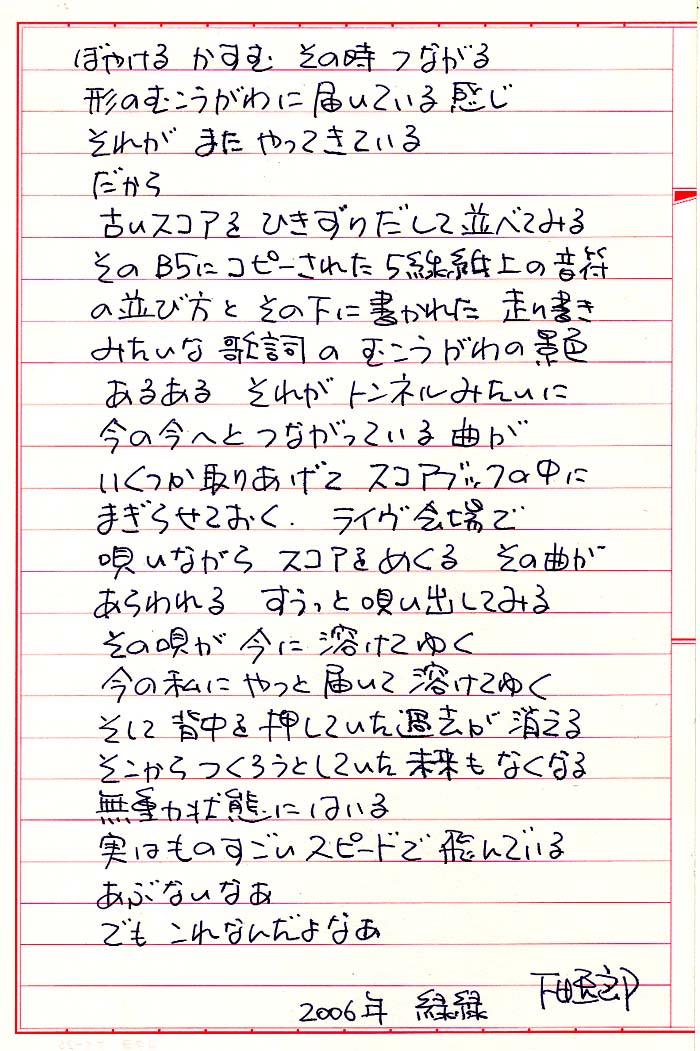 ぼやける かすむ その時 つながる
形のむこうがわに 届いている感じ
それが また やってきている
だから
古いスコアを ひきずりだして並べてみる
その B5にコピーされた 5線紙上の音符
の並び方と その下に書かれた 走り書き
みたいな 歌詞の むこうがわの景色
あるある それが トンネルみたいに
今の今へと つながっている 曲が
いくつか取りあげて スコアブックの中に
まぎらせておく. ライヴ会場で
唄いながら スコアをめくる その曲が
あらわれる すうっと唄い出してみる
その唄が 今に 溶けてゆく
今の私に やっと 届いて 溶けてゆく
そして 背中を 押していた過去が 消える
そこから つくろうとしていた 未来も なくなる
無重力状態にはいる
実はものすごいスピードで 飛んでいる
あぶないなあ
でも これなんだよなあ
2006年 緑緑